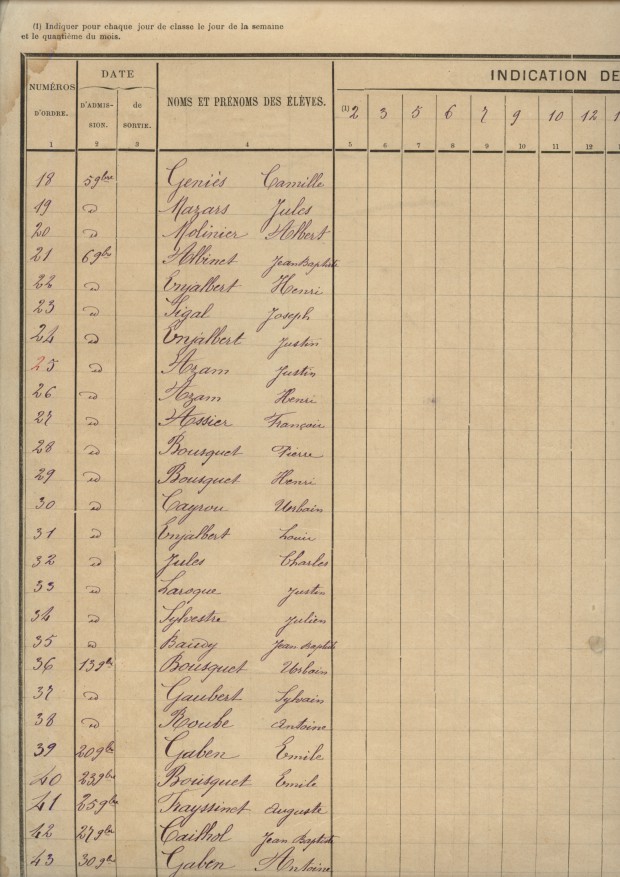 (1) Indiquer pour chaque jour de classe le jour de la semaine
et le quantième du mois.
NUMÉROS D'ORDRE. DATE NOMS ET PRÉNOMS DES ÉLÈVES. INDICATION DE
D'ADMISSION. de SORTIE. (1) 2 3 5 6 7 9 10 12 1
1 2 3 4 5 6 7 8 9 10 11 12 1
18 5 9bre Geniès Camille
19 d Mazars Jules
20 d Molinier Albert
21 6 9bre Albinet Jean Baptiste
22 d Enjalbert Henri
23 d Sigal Joseph
24 d Enjalbert Justin
25 d Azam Justin
26 d Azam Henri
27 d Assier François
28 d Bousquet Pierre
29 d Bousquet Henri
30 d Cayrou Urbain
31 d Enjalbert Louis
32 d Jules Charles
33 d Laroque Justin
34 d Sylvestre Julien
35 d Baudy Jean Baptiste
36 13 9bre Bousquet Urbain
37 d Gaubert Sylvain
38 d Roube Antoine
39 20 9bre Gaben Emile
40 23 9bre Bousquet Emile
41 25 9bre Frayssinet Auguste
42 27 9bre Cailhol Jean Baptiste
43 30 9bre Gaben Antoine